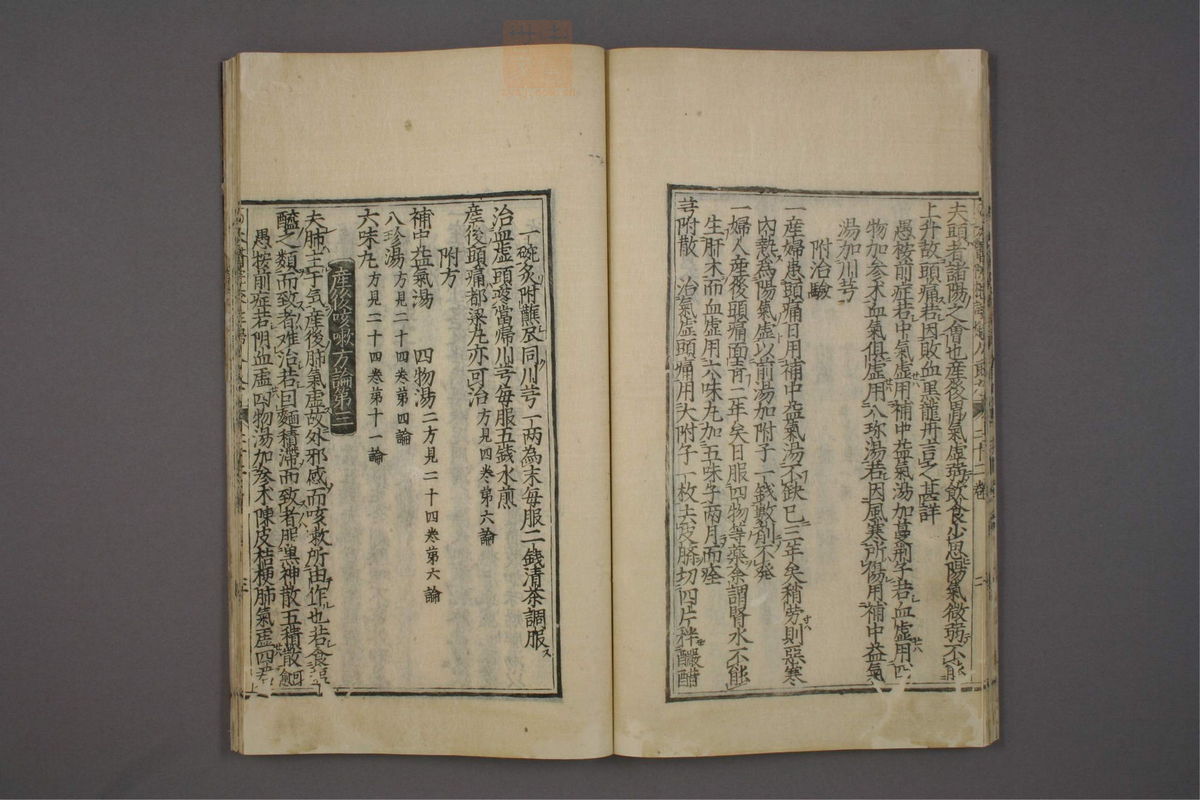 夫頭者諸陽之會也産後胃氣虛弱飲食少思陽氣微弱不能
上升故頭痛若因敗血黒龍丹言之甚詳
愚按前症若中氣虛用補中益氣湯加蔓荊子若血虛用四
物加參朮血氣俱虛用八珍湯若因風寒所傷用補中益氣
湯加川芎
附治驗
一産婦患頭痛日用補中益氣湯不缺已三年矣稍劳則惡寒
内熱為陽氣虛以前湯加附子一錢數劑不發
一婦人産後頭痛面青二年矣日服四物等藥余謂腎水不能
生肝木而血虛用六味丸加五味子兩月而痊
芎附散 治氣虛頭痛用大附子一枚去皮臍切四片秤釅醋
一碗炙附蘸尽同川芎一两為末每服二錢清茶調服
治血虛頭疼當帰川芎每服五錢水煎
産後頭痛都梁丸亦可治方見四卷第六論
附方
補中益氣湯 四物湯二方見二十四卷第六論
八珍湯方見二十四卷第四論
六味丸方見二十四卷第十一論
産後咳嗽方論第三
夫肺主于氣産後肺氣虛故外邪感而咳嗽所由作也若食
醯之類而致者难治若因麵積滯而致者服黒神散五積散
愚按前症若阴血虛四物湯加參朮陳皮桔梗肺氣虛四君